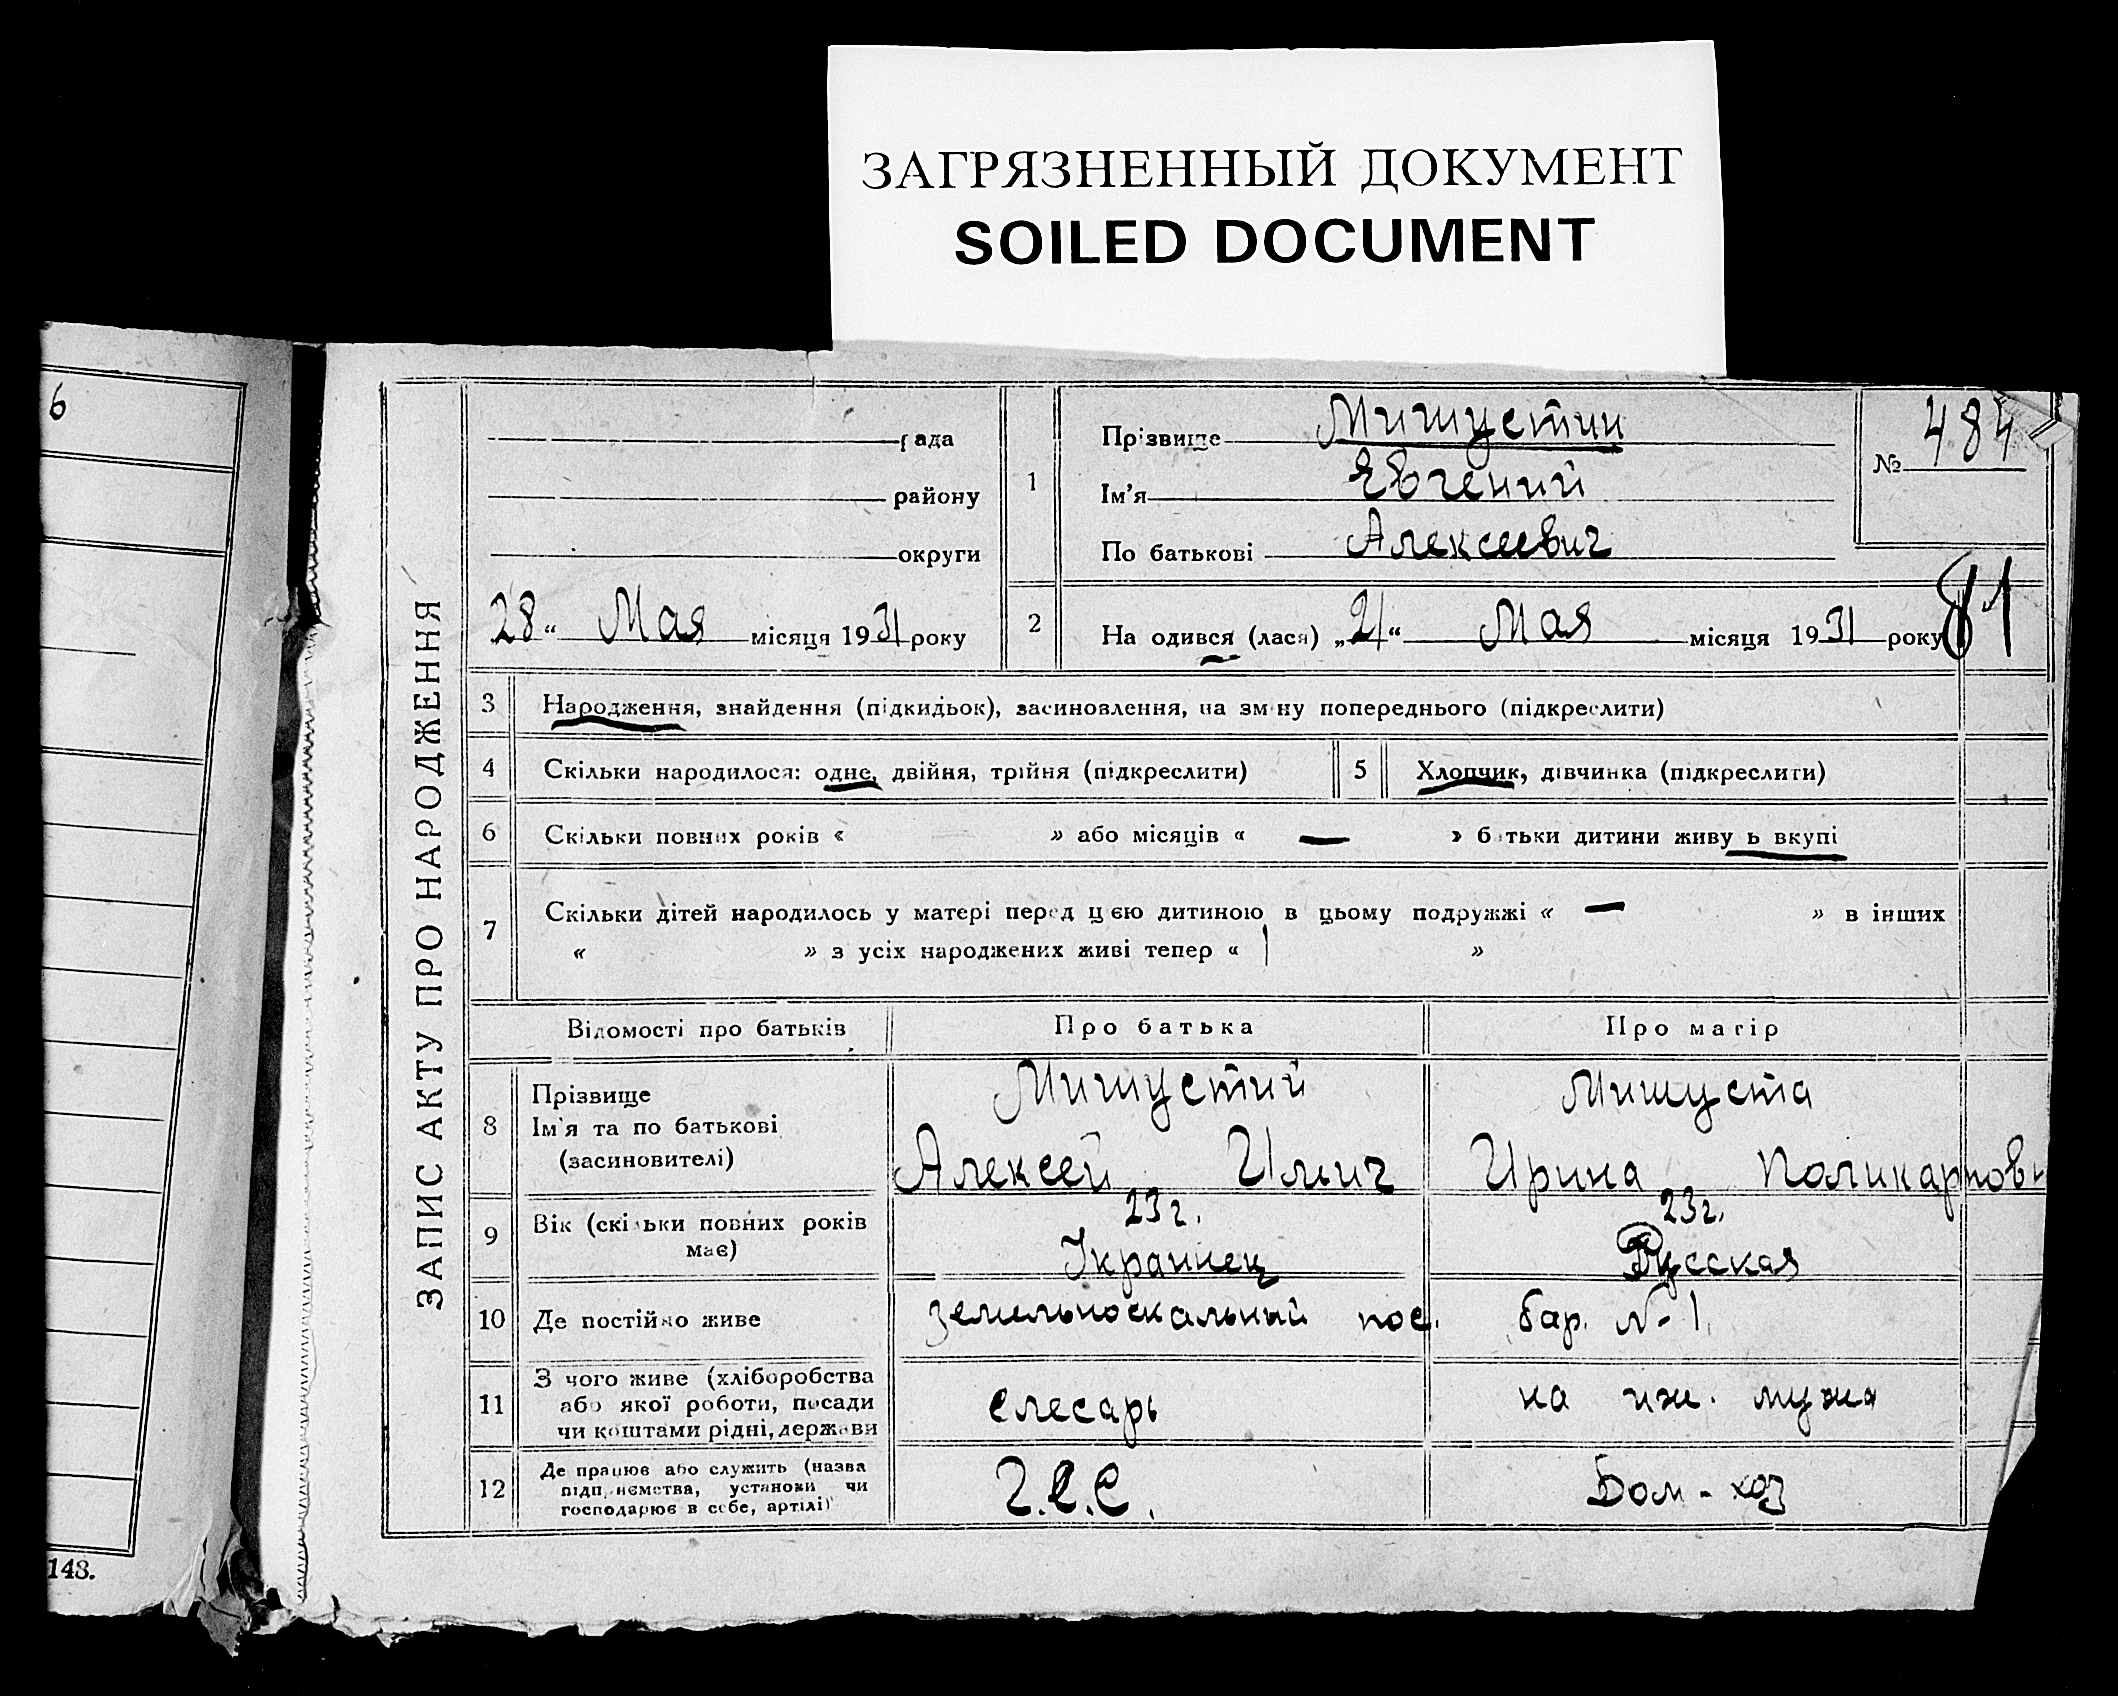 ЗАГРЯЗНЕННЫЙ ДОКУМЕНТ
SOILED DOCUMENT
6
143.
ЗАПИС АКТУ ПРО НАРОДЖЕННЯ
рада
району
округи
28 “ Мая місяця 1931 року
1
Прізвище Мишустин
Ім’я Евгений
По батькові Алексеевич
№ 484
81
2
На одився (лася) „21“ Мая місяця 1931 року
3 Народження, знайдення (підкидьок), засиновлення, на зміну попереднього (підкреслити)
4 Скільки народилося: одне, двійня, трійня (підкреслити)
5 Хлопчик, дівчинка (підкреслити)
6 Скільки повних років « » або місяців « — » батьки дитини живу ь вкупі
7 Скільки дітей народилось у матері перед цією дитиною в цьому подружжі « — » в інших
« » з усіх народжених живі тепер « 1 »
Відомості про батьків Про батька Про матір
8 Прізвище
Ім'я та по батькові
(засиновителі)
Мишустин
Алексей Ильич
Мишуста
Ирина Поликарпов
9 Вік (скільки повних років
має)
23 г.
Украинец
23 г.
Русская
10 Де постійно живе
земельноскальный пос. бар. № 1.
11 З чого живе (хліборобства
або якої роботи, посади
чи коштами рідні, держави
слесарь
на иж. мужа
12 Де працює або служить (назва
підп иємства, установи чи
господарює в себе, артілі)
Г.Э.С.
Дом-хоз